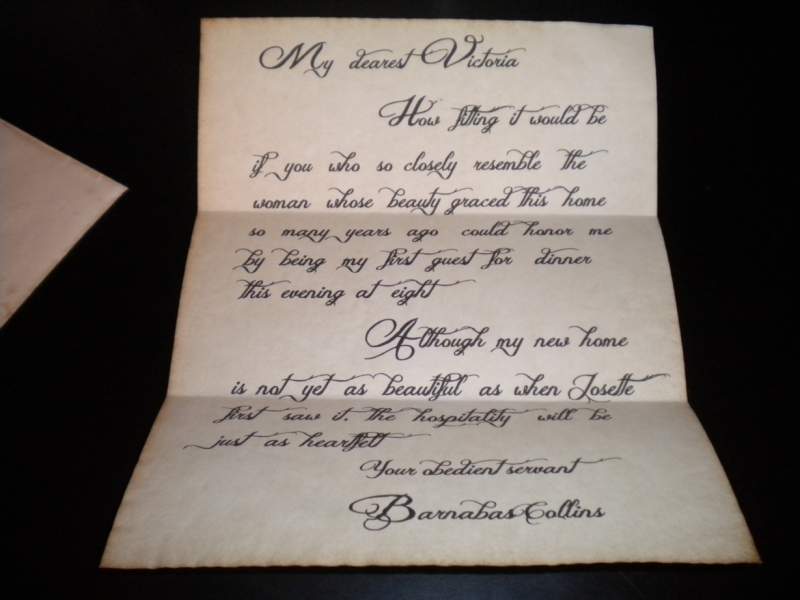 My dearest Victoria
How fitting it would be
if you who so closely resemble the
woman whose beauty graced this home
so many years ago could honor me
by being my first guest for dinner
this evening at eight
Although my new home
is not yet as beautiful as when Josette
first saw it, the hospitality will be
just as heartfelt
Your obedient servant
Barnabas Collins